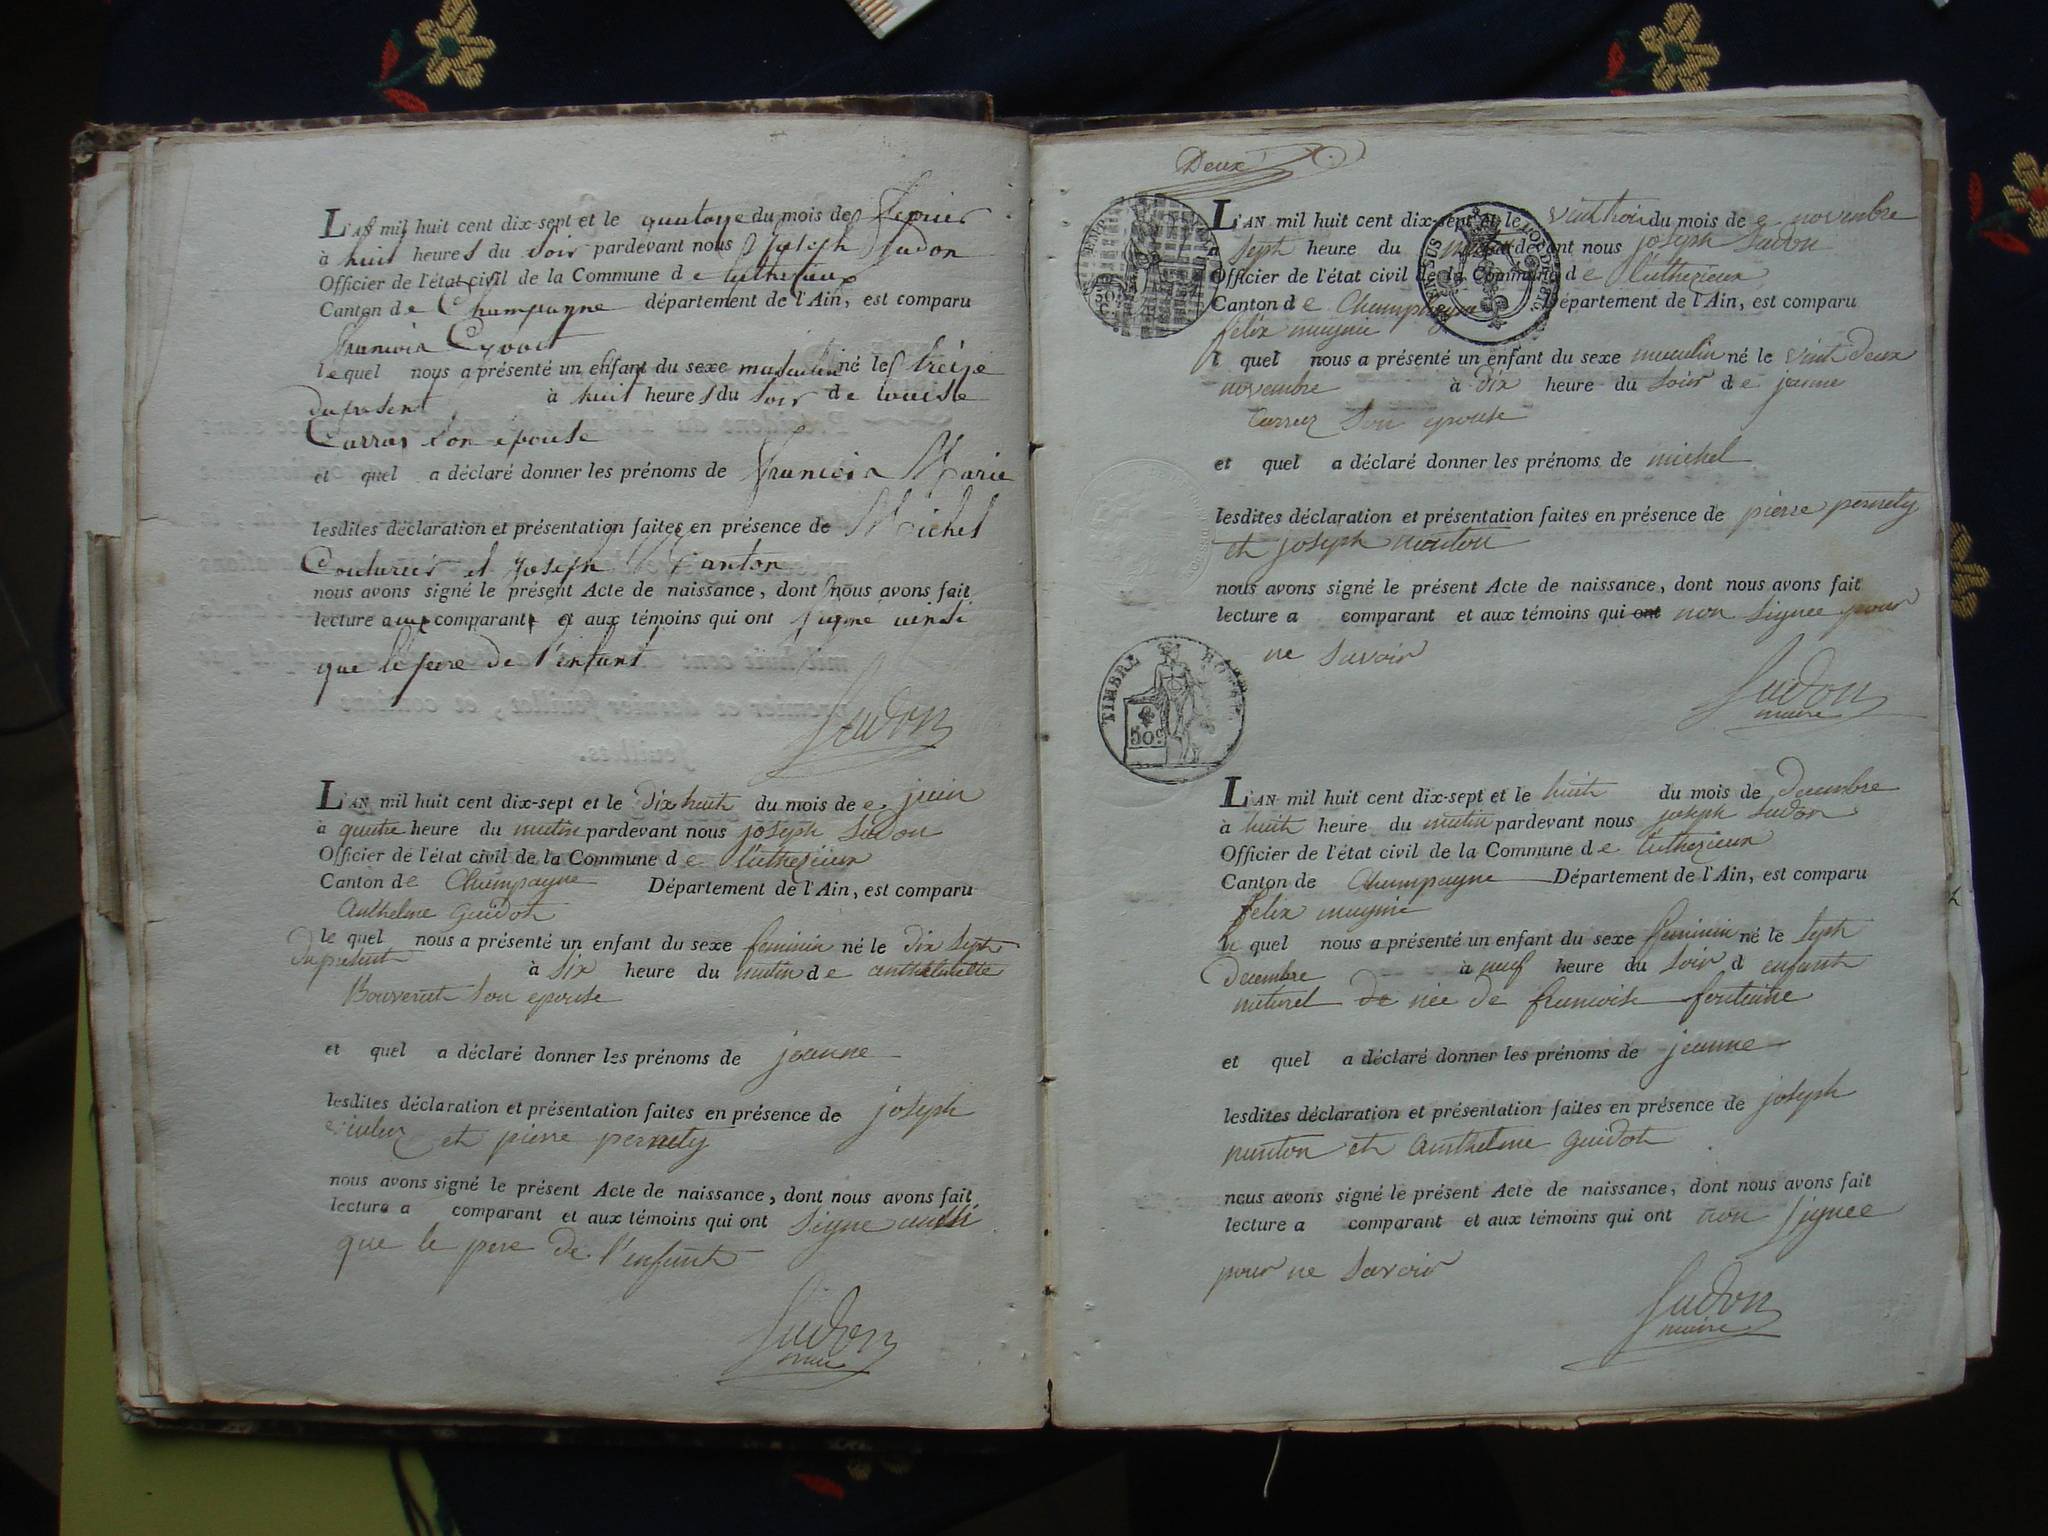 L'AN mil huit cent dix-sept et le quatorze du mois de fevrier
à huit heures du soir pardevant nous Joseph Sudon
Officier de l'état civil de la Commune de luthezieux
Canton de Champagne département de l'Ain, est comparu
francois
lequel nous a présenté un enfant du sexe masculin né le treize
du présent à huit heures du soir de louise
Carraz son epouse
et quel a déclaré donner les prénoms de francois Marie
lesdites déclaration et présentation faites en présence de Michel
Couturier et Joseph Nanton
nous avons signé le présent Acte de naissance, dont nous avons fait
lecture aux comparant et aux témoins qui ont signé ainsi
que le pere de l'enfant
Sudon
L'AN mil huit cent dix-sept et le dix huit du mois de juin
à quatre heure du matin pardevant nous joseph Sudon
Officier de l'état civil de la Commune de luthezieux
Canton de Champagne Département de l'Ain, est comparu
Anthelme guidot
le quel nous a présenté un enfant du sexe feminin né le dix sept
du présent à six heure du matin de anthelmette
Bouvent son epouse
et quel a déclaré donner les prénoms de jeanne
lesdites déclaration et présentation faites en présence de joseph
et pierre pernety
nous avons signé le présent Acte de naissance, dont nous avons fait
lecture a comparant et aux témoins qui ont signe aussi
que le pere de l'enfant
Sudon
maire
Deux
L'AN mil huit cent dix-sept et le vint trois du mois de novembre
à sept heure du matin pardevant nous joseph Sudon
Officier de l'état civil de la Commune de luthezieux
Canton de Champagne Département de l'Ain, est comparu
felix mugnié
l quel nous a présenté un enfant du sexe masculin né le vint deux
novembre à dix heure du soir de jeanne
Carraz son epouse
et quel a déclaré donner les prénoms de michel
lesdites déclaration et présentation faites en présence de pierre pernety
et joseph nanton
nous avons signé le présent Acte de naissance, dont nous avons fait
lecture a comparant et aux témoins qui ont non signee pour
ne savoir
TIMBRE ROYAL
50c
Sudon
maire
L'AN mil huit cent dix-sept et le huit du mois de decembre
à huit heure du matin pardevant nous joseph Sudon
Officier de l'état civil de la Commune de luthezieux
Canton de Champagne Département de l'Ain, est comparu
felix mugnié
le quel nous a présenté un enfant du sexe feminin né le sept
decembre à neuf heure du soir d enfant
naturel de née de francoise fontaine
et quel a déclaré donner les prénoms de jeanne
lesdites déclaration et présentation faites en présence de joseph
nanton et anthelme guidot
nous avons signé le présent Acte de naissance, dont nous avons fait
lecture a comparant et aux témoins qui ont non signee
pour ne savoir
Sudon
maire